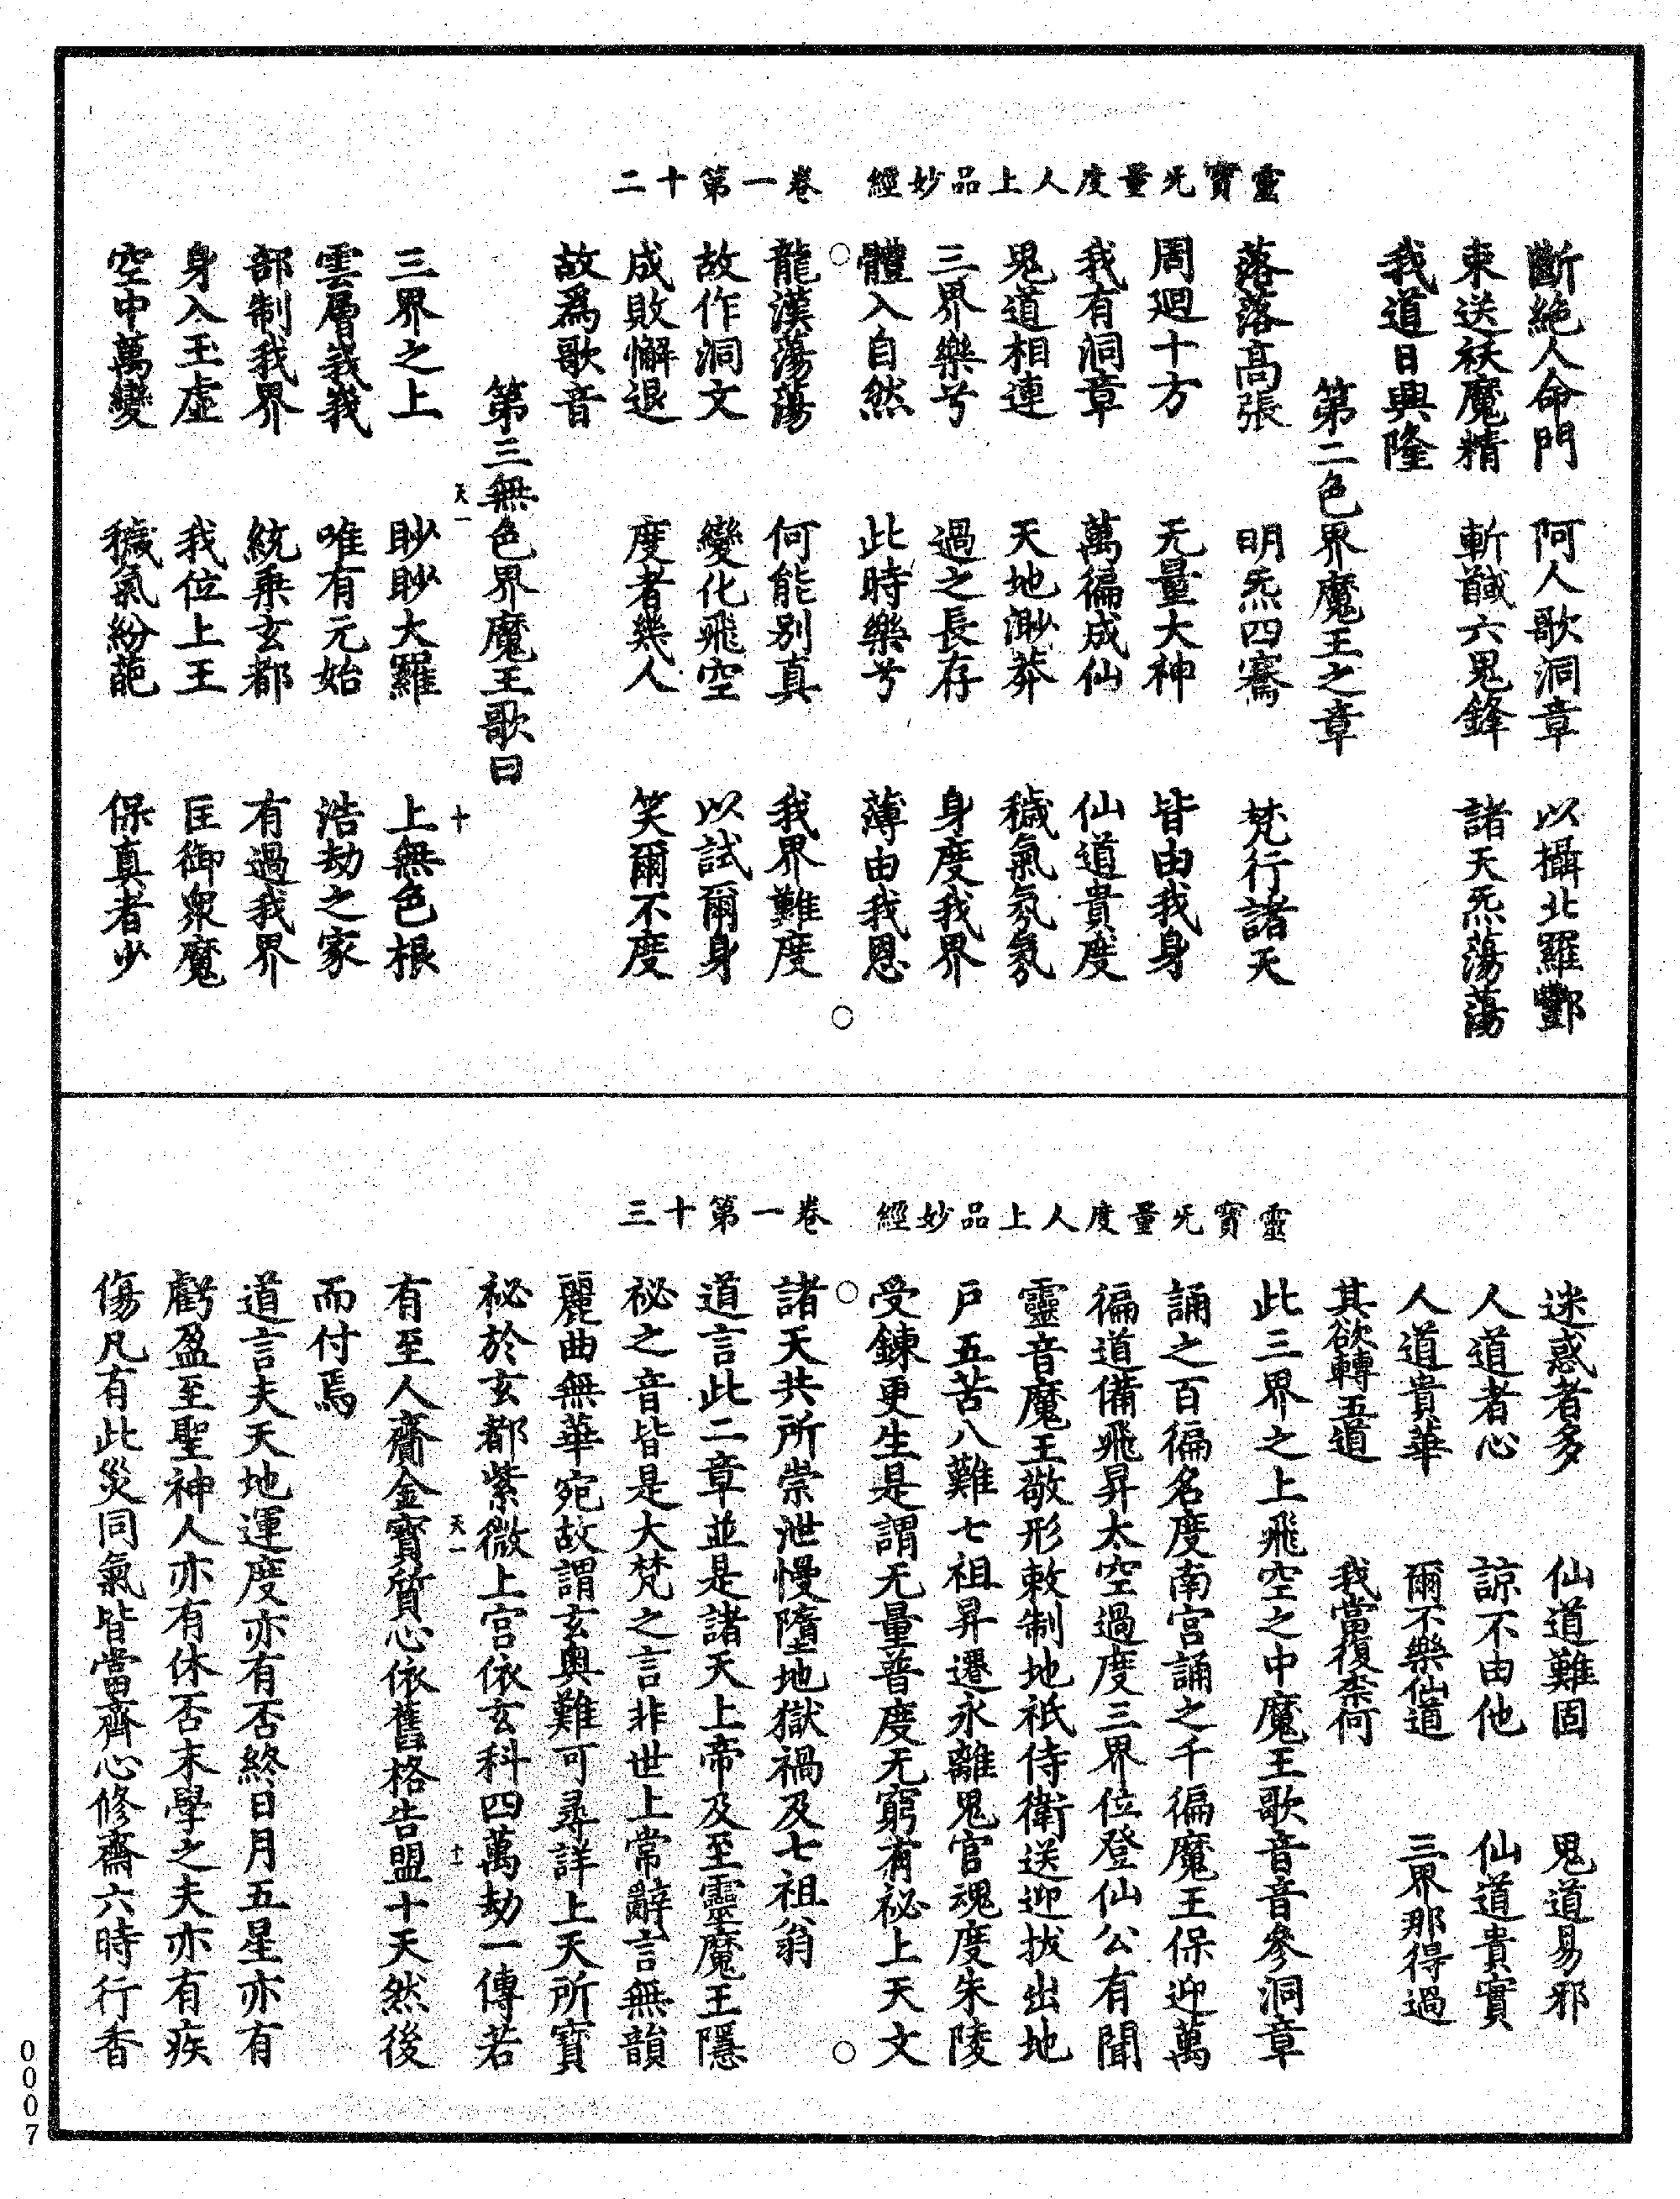 靈寶无量度人上品妙經　卷一第十二
斷絕人命門　阿人歌洞章　以攝北羅酆
束送祅魔精　斬馘六鬼鋒　諸天炁蕩蕩
我道日興隆
第二色界魔王之章
落落高張　明炁四騫　梵行諸天
周迴十方　无量大神　皆由我身
我有洞章　萬徧成仙　仙道貴度
鬼道相連　天地渺莽　穢氣氛氛
三界樂兮　過之長存　身度我界
體入自然　此時樂兮　薄由我恩
龍漢蕩蕩　何能別真　我界難度
故作洞文　變化飛空　以試爾身
成敗懈退　度者幾人　笑爾不度
故爲歌音
第三無色界魔王歌曰
天一　十
三界之上　眇眇大羅　上無色根
雲層峩峩　唯有元始　浩劫之家
部制我界　統乘玄都　有過我界
身入玉虛　我位上王　匡御衆魔
空中萬變　穢氣紛葩　保真者少
靈寶无量度人上品妙經　卷一第十三
迷惑者多　仙道難固　鬼道易邪
人道者心　諒不由他　仙道貴實
人道貴華　爾不樂仙道　三界那得過
其欲轉五道　我當復柰何
此三界之上飛空之中魔王歌音音參洞章
誦之百徧名度南宮誦之千徧魔王保迎萬
徧道備飛昇太空過度三界位登仙公有聞
靈音魔王敬形敕制地祇侍衛送迎拔出地
戶五苦八難七祖昇遷永離鬼官魂度朱陵
受鍊更生是謂无量普度无窮有祕上天文
諸天共所崇泄慢墮地獄禍及七祖翁
道言此二章並是諸天上帝及至靈魔王隱
祕之音皆是大梵之言非世上常辭言無韻
麗曲無華宛故謂玄奧難可尋詳上天所寶
祕於玄都紫微上宮依玄科四萬劫一傳若
天一　十一
有至人齎金寶質心依舊格告盟十天然後
而付焉
道言夫天地運度亦有否終日月五星亦有
虧盈至聖神人亦有休否末學之夫亦有疾
傷凡有此災同氣皆當齊心修齋六時行香
0007